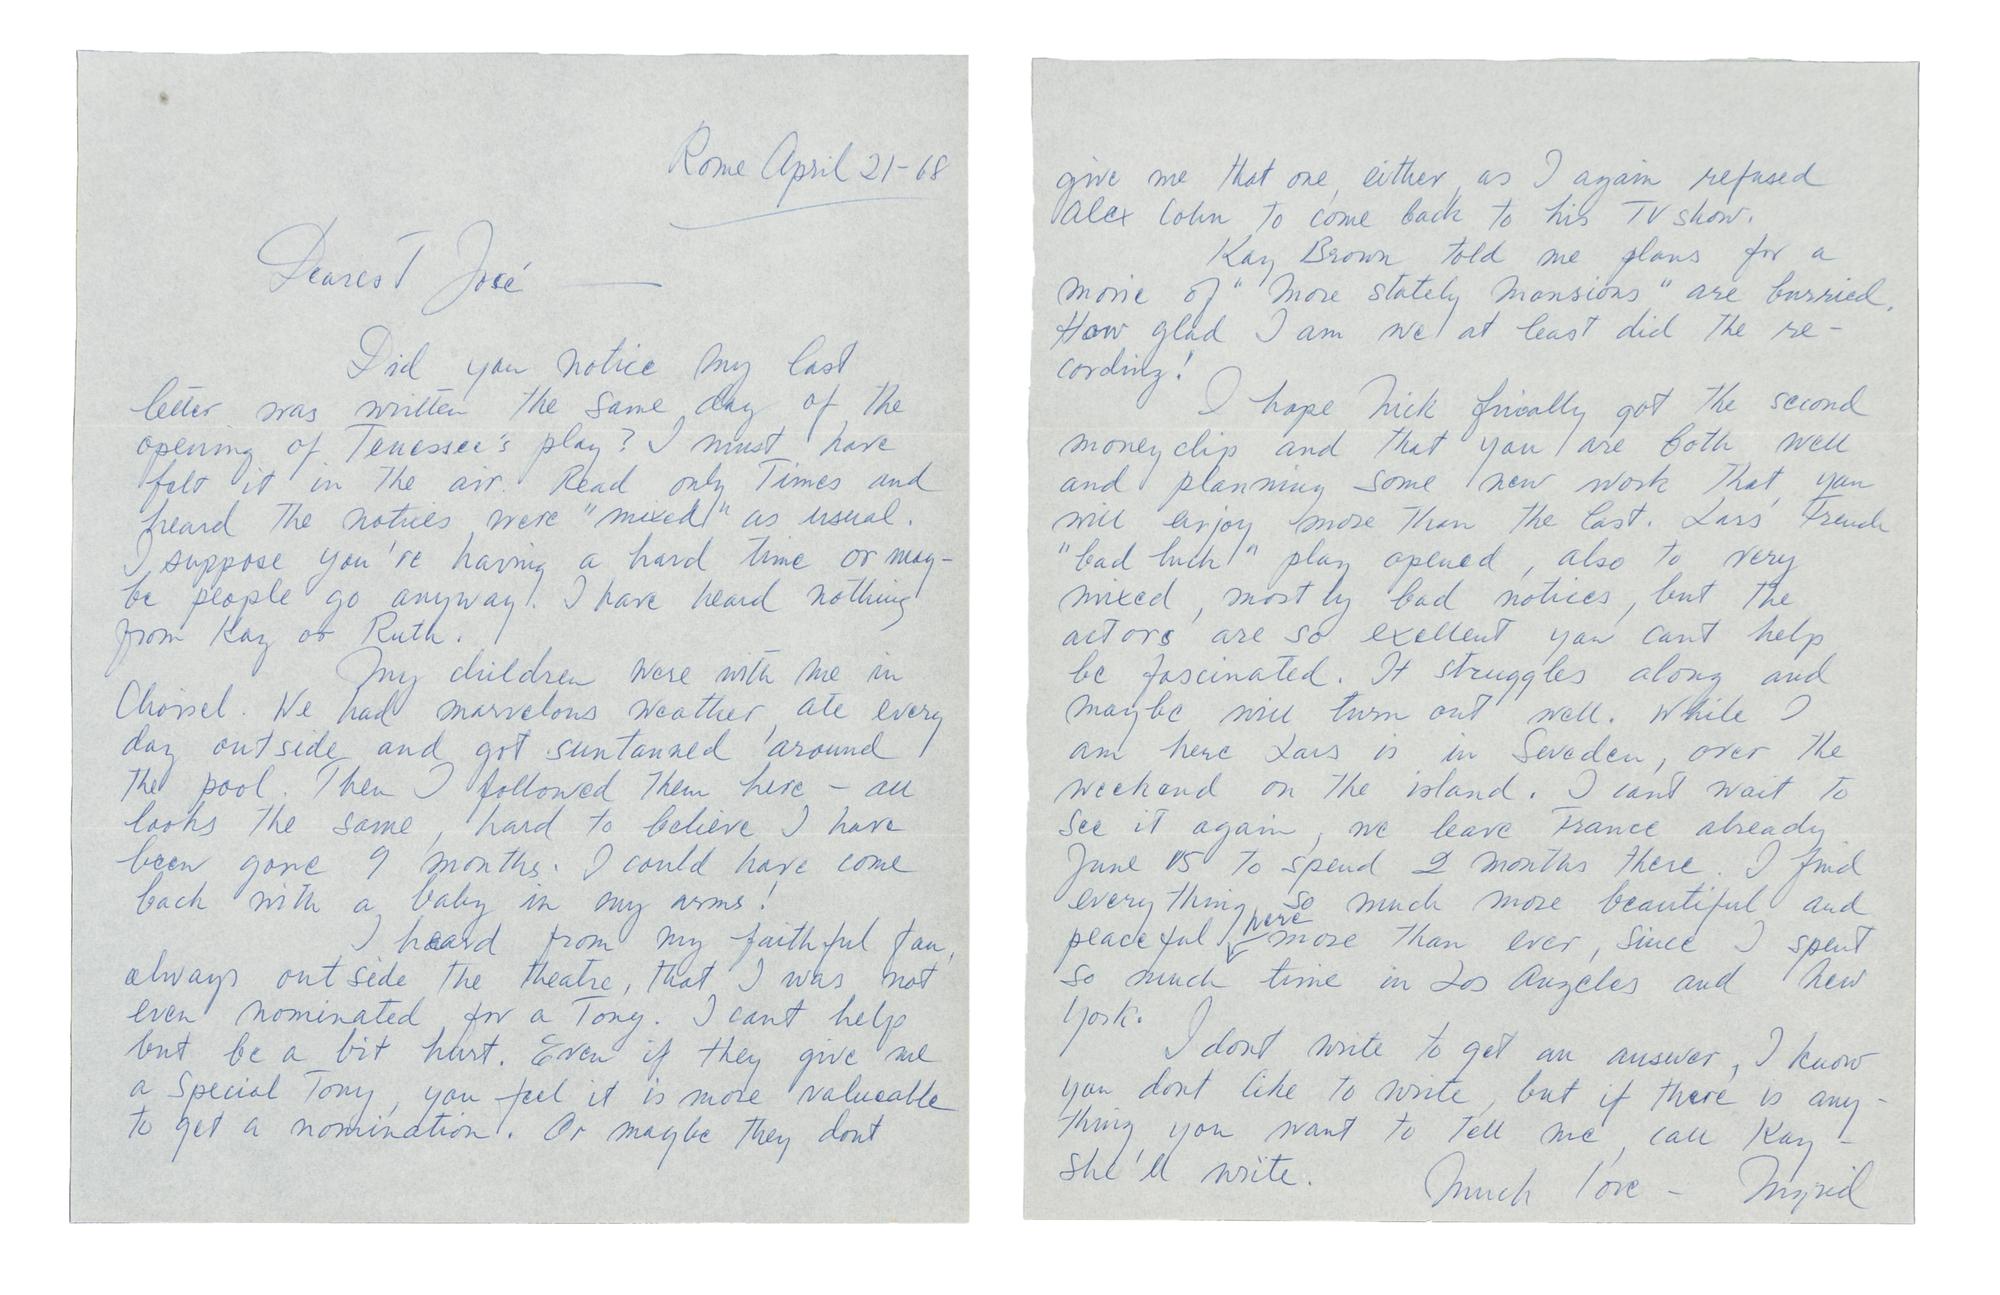 Rome April 21-68
Dearest José —
Did you notice my last
letter was written the same day of the
opening of Tenessee's play? I must have
felt it in the air. Read only Times and
heard the notices were "mixed" as usual.
I suppose you're having a hard time or may-
be people go anyway. I have heard nothing
from Kay or Ruth.
My children were with me in
Choisel. We had marvelous weather, ate every
day outside and got suntanned around
the pool. Then I followed them here - all
looks the same, hard to believe I have
been gone 9 months. I could have come
back with a baby in my arms!
I heard from my faithful fan,
always outside the theatre, that I was not
even nominated for a Tony. I cant help
but be a bit hurt. Even if they give me
a Special Tony, you feel it is more valueable
to get a nomination. Or maybe they dont
give me that one, either, as I again refused
Alex Cohn to come back to his TV show.
Kay Brown told me plans for a
movie of "More stately Mansions" are burried.
How glad I am we at least did the re-
cording!
I hope Nick finally got the second
moneyclip and that you are both well
and planning some new work that you
will enjoy more than the last. Lars' French
"bad luck" play opened, also to very
mixed, mostly bad notices, but the
actors are so exellent you cant help
be fascinated. It struggles along and
maybe will turn out well. While I
am here Lars is in Sweden, over the
weekend on the island. I cant wait to
see it again, we leave France already
June 15 to spend 2 months there. I find
everything so much more beautiful and
peaceful here more than ever, since I spent
so much time in Los Angeles and New
York.
I dont write to get an answer, I know
you dont like to write, but if there is any-
thing you want to tell me, call Kay -
she'll write.
Much love - Ingrid